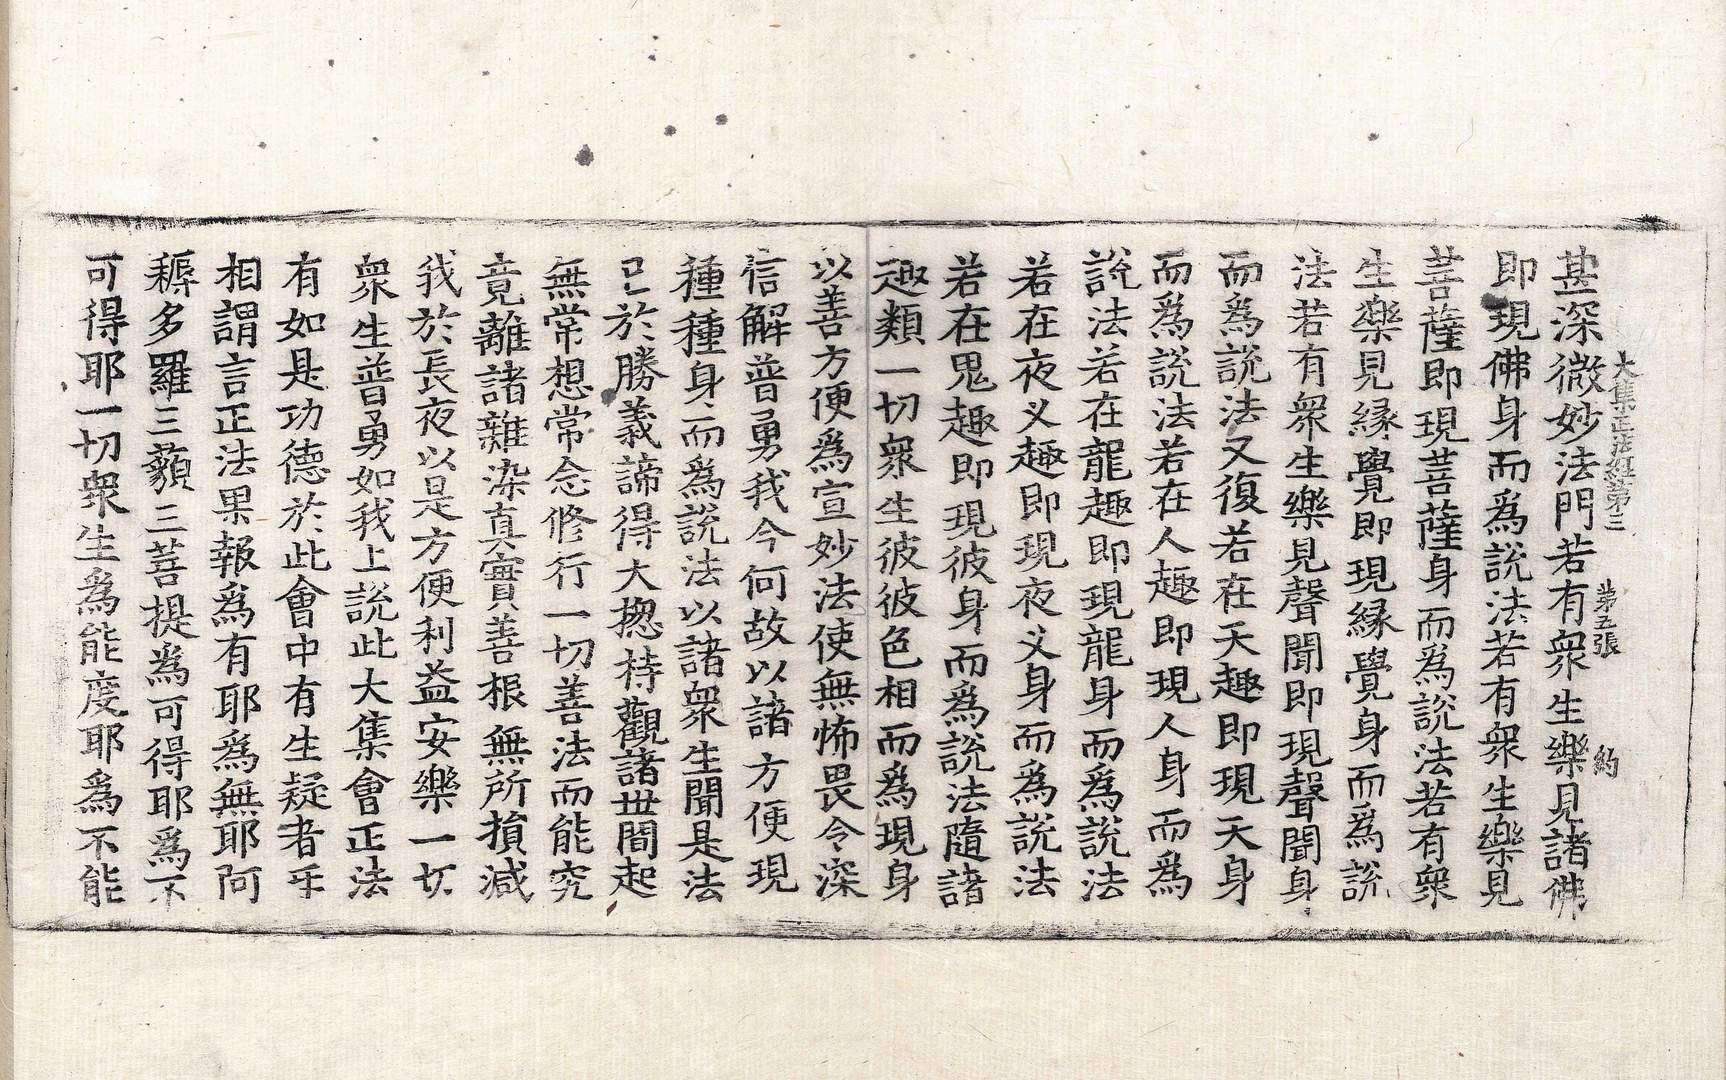 大集正法經第三 第五張 約
甚深微妙法門若有衆生樂見諸佛
即現佛身而爲說法若有衆生樂見
菩薩即現菩薩身而爲說法若有衆
生樂見緣覺即現緣覺身而爲說
法若有衆生樂見聲聞即現聲聞身
而爲說法又復若在天趣即現天身
而爲說法若在人趣即現人身而爲
說法若在龍趣即現龍身而爲說法
若在夜叉趣即現夜叉身而爲說法
若在鬼趣即現彼身而爲說法隨諸
趣類一切衆生彼彼色相而爲現身
以善方便爲宣妙法使無怖畏令深
信解普勇我今何故以諸方便現
種種身而爲說法以諸衆生聞是法
已於勝義諦得大揔持觀諸世間起
無常想常念修行一切善法而能究
竟離諸雜染真實善根無所損減
我於長夜以是方便利益安樂一切
衆生普勇如我上說此大集會正法
有如是功德於此會中有生疑者乎
相謂言正法果報爲有耶爲無耶阿
耨多羅三藐三菩提爲可得耶爲不
可得耶一切衆生爲能度耶爲不能